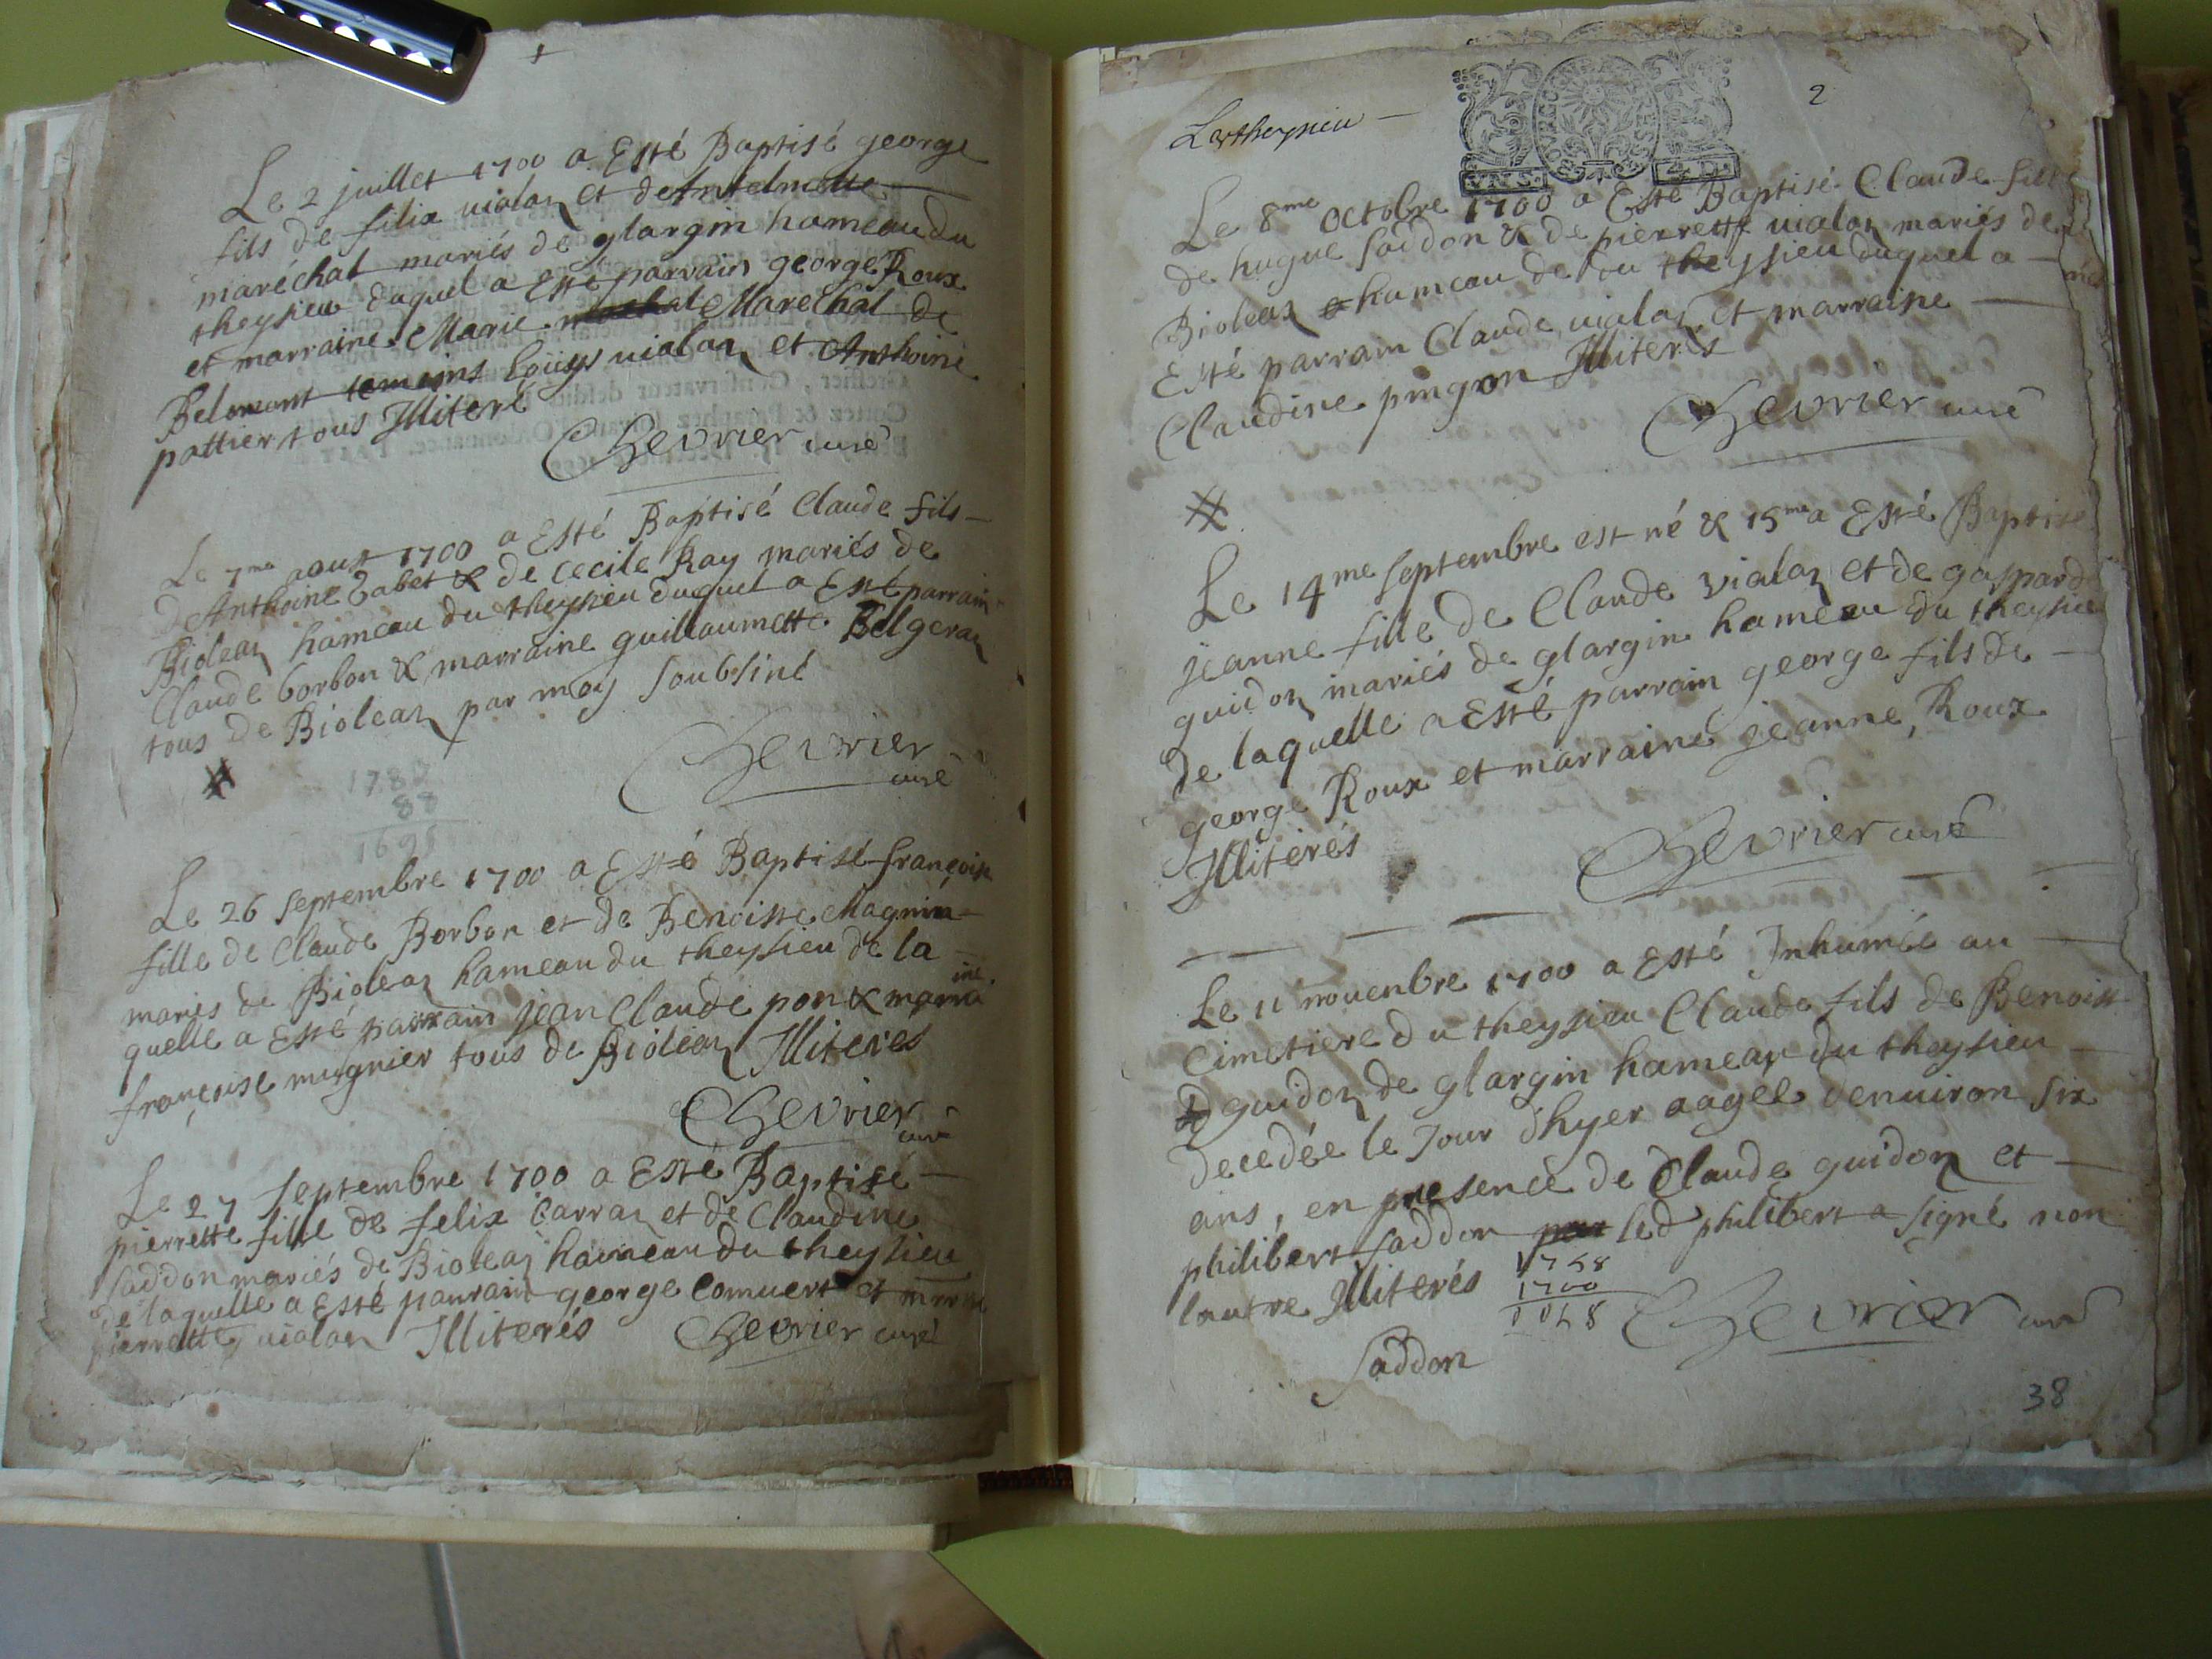 1
Le 2 juillet 1700 a Esté Baptisé george
fils de filix vialon et de Antelmette
maréchal mariés de glargin hameau du
theysieu duquel a Esté parrain george Roux
et marraine Marie Marechal de
Belomont temoins Loüys vialon et Anthoine
pattier tous Illiteré
Chevrier curé
Le 7me aoust 1700 a Esté Baptisé Claude fils
D'Anthoine Tabet & de Cecile Ray mariés de
Bioleaz hameau du theysieu duquel a Esté parrain
Claude borbon & marraine guillaumette Belgeraz
tous de Bioleaz par moy soubsiné
Chevrier
curé
1783
88
1695
Le 26 Septembre 1700 a Esté Baptisé françoise
fille de Claude Borbon et de Benoiste Magnin
mariés de Bioleaz hameau du theysieu de la
quelle a Esté parrain jean Claude pon & marraine
françoise mugnier tous de Bioleaz Illiterés
Chevrier
curé
Le 27 Septembre 1700 a Esté Baptisé
pierrette fille de felix Carraz et de Claudine
Saddon mariés de Bioleaz hameau du theysieu
de laquelle a Esté parrain george Comuert et
pierrette vialon Illiterés Chevrier curé
2
Lartheysieu
VN S. 4 D.
Le 8me Octobre 1700 a Esté Baptisé Claude fils
de hugue Saddon & de pierrette vialon mariés de
Bioleaz hameau de du theysieu duquel a
Esté parrain Claude vialon et marraine
Claudine pingon Illiterés
Chevrier curé
Le 14me Septembre est né & 15me a Esté Baptisé
jeanne fille de Claude vialon et de gasparde
guidon mariés de glargin hameau du theysieu
de laquelle a Esté parrain george fils de
george Roux et marraine jeanne Roux
Illiterés
Chevrier curé
Le 11 nouenbre 1700 a Esté Inhumée au
Cimetiere du theysieu Claude fils de Benoist
guidon de glargin hameau du theysieu
decedée le Jour d'hyer aagee denuiron six
ans, en presence de Claude guidon et
philibert Saddon led philibert a signé non
lautre Illiterés
1768
1700
0068
Chevrier curé
Saddon
38